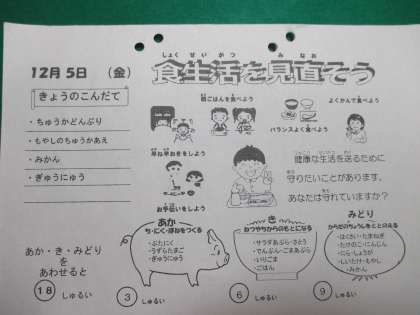 12月5日 （金）
しょくせいかつ みなお
食生活を見直そう
きょうのこんだて
・ちゅうかどんぶり
・もやしのちゅうかあえ
・みかん
・ぎゅうにゅう
朝ごはんを食べよう
よくかんで食べよう
バランスよく食べよう
早ね早おきをしよう
お手伝いをしよう
健康な生活を送るために
守りたいことがあります。
あなたは守れていますか？
あか
ち・にく・ほねをつくる
・ぶたにく
・うずらたまご
・ぎゅうにゅう
き
ねつやちからのもとになる
・サラダあぶら・さとう
・でんぷん・ごまあぶら
・いりごま
・ごはん
みどり
からだのちょうしをととのえる
・はくさい・たまねぎ
・たけのこ・にんじん
・にら・しょうが
・しいたけ・もやし
・みかん
あか・き・みどり
を
あわせると
18 しゅるい
3 しゅるい
6 しゅるい
9 しゅるい